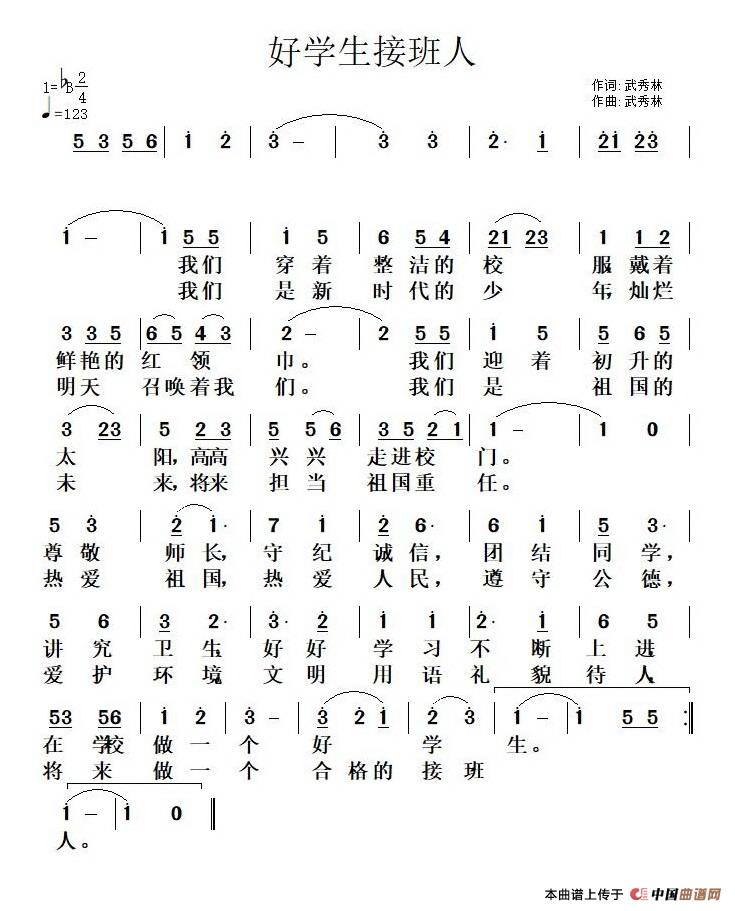 好学生接班人
1=♭B 2/4
♩=123
作词: 武秀林
作曲: 武秀林
5 3 5 6 | 1̇ 2̇ | 3̇ – | 3̇ 3̇ | 2̇· 1̇ | 2̇1̇ 2̇3̇ |
1̇ – | 1̇ 5 5 | 1̇ 5 | 6 5 4 | 2̇1̇ 2̇3̇ | 1̇ 1̇ 2
我们 穿着 整洁的 校 服 戴着
我们 是新 时代的 少 年, 灿烂
3 3 5 | 6 5 4 3 | 2 – | 2 5 5 | 1̇ 5 | 5 6 5
鲜艳的 红 领 巾。 我们 迎着 初升的
明天 召唤着我 们。 我们 是 祖国的
3 2 3 | 5 2 3 | 5 5 6 | 3 5 2 1 | 1 – | 1 0
太 阳, 高高 兴兴 走进校 门。
未 来, 将来 担当 祖国重 任。
5 3̇ | 2̇ 1̇· | 7 1̇ | 2̇ 6· | 6 1̇ | 5 3·
尊敬 师长, 守纪 诚信, 团结 同学,
热爱 祖国, 热爱 人民, 遵守 公德,
5 6 | 3̇ 2̇· | 3̇· 2̇ | 1̇ 2̇ | 2̇· 1̇ | 6 5
讲究 卫生, 好好 学习 不断 上进
爱护 环境, 文明 用语 礼貌 待人
53 56 | 1̇ 2̇ | 3̇ – | 3̇ 2̇ 1̇ | 2̇ 3̇ | 1̇ – | 1̇ 5 5 :‖
在 学校 做一 个 好 学 生。
将 来 做一 个 合格的 接班
1̇ – | 1̇ 0 ‖
人。
本曲谱上传于 中国曲谱网